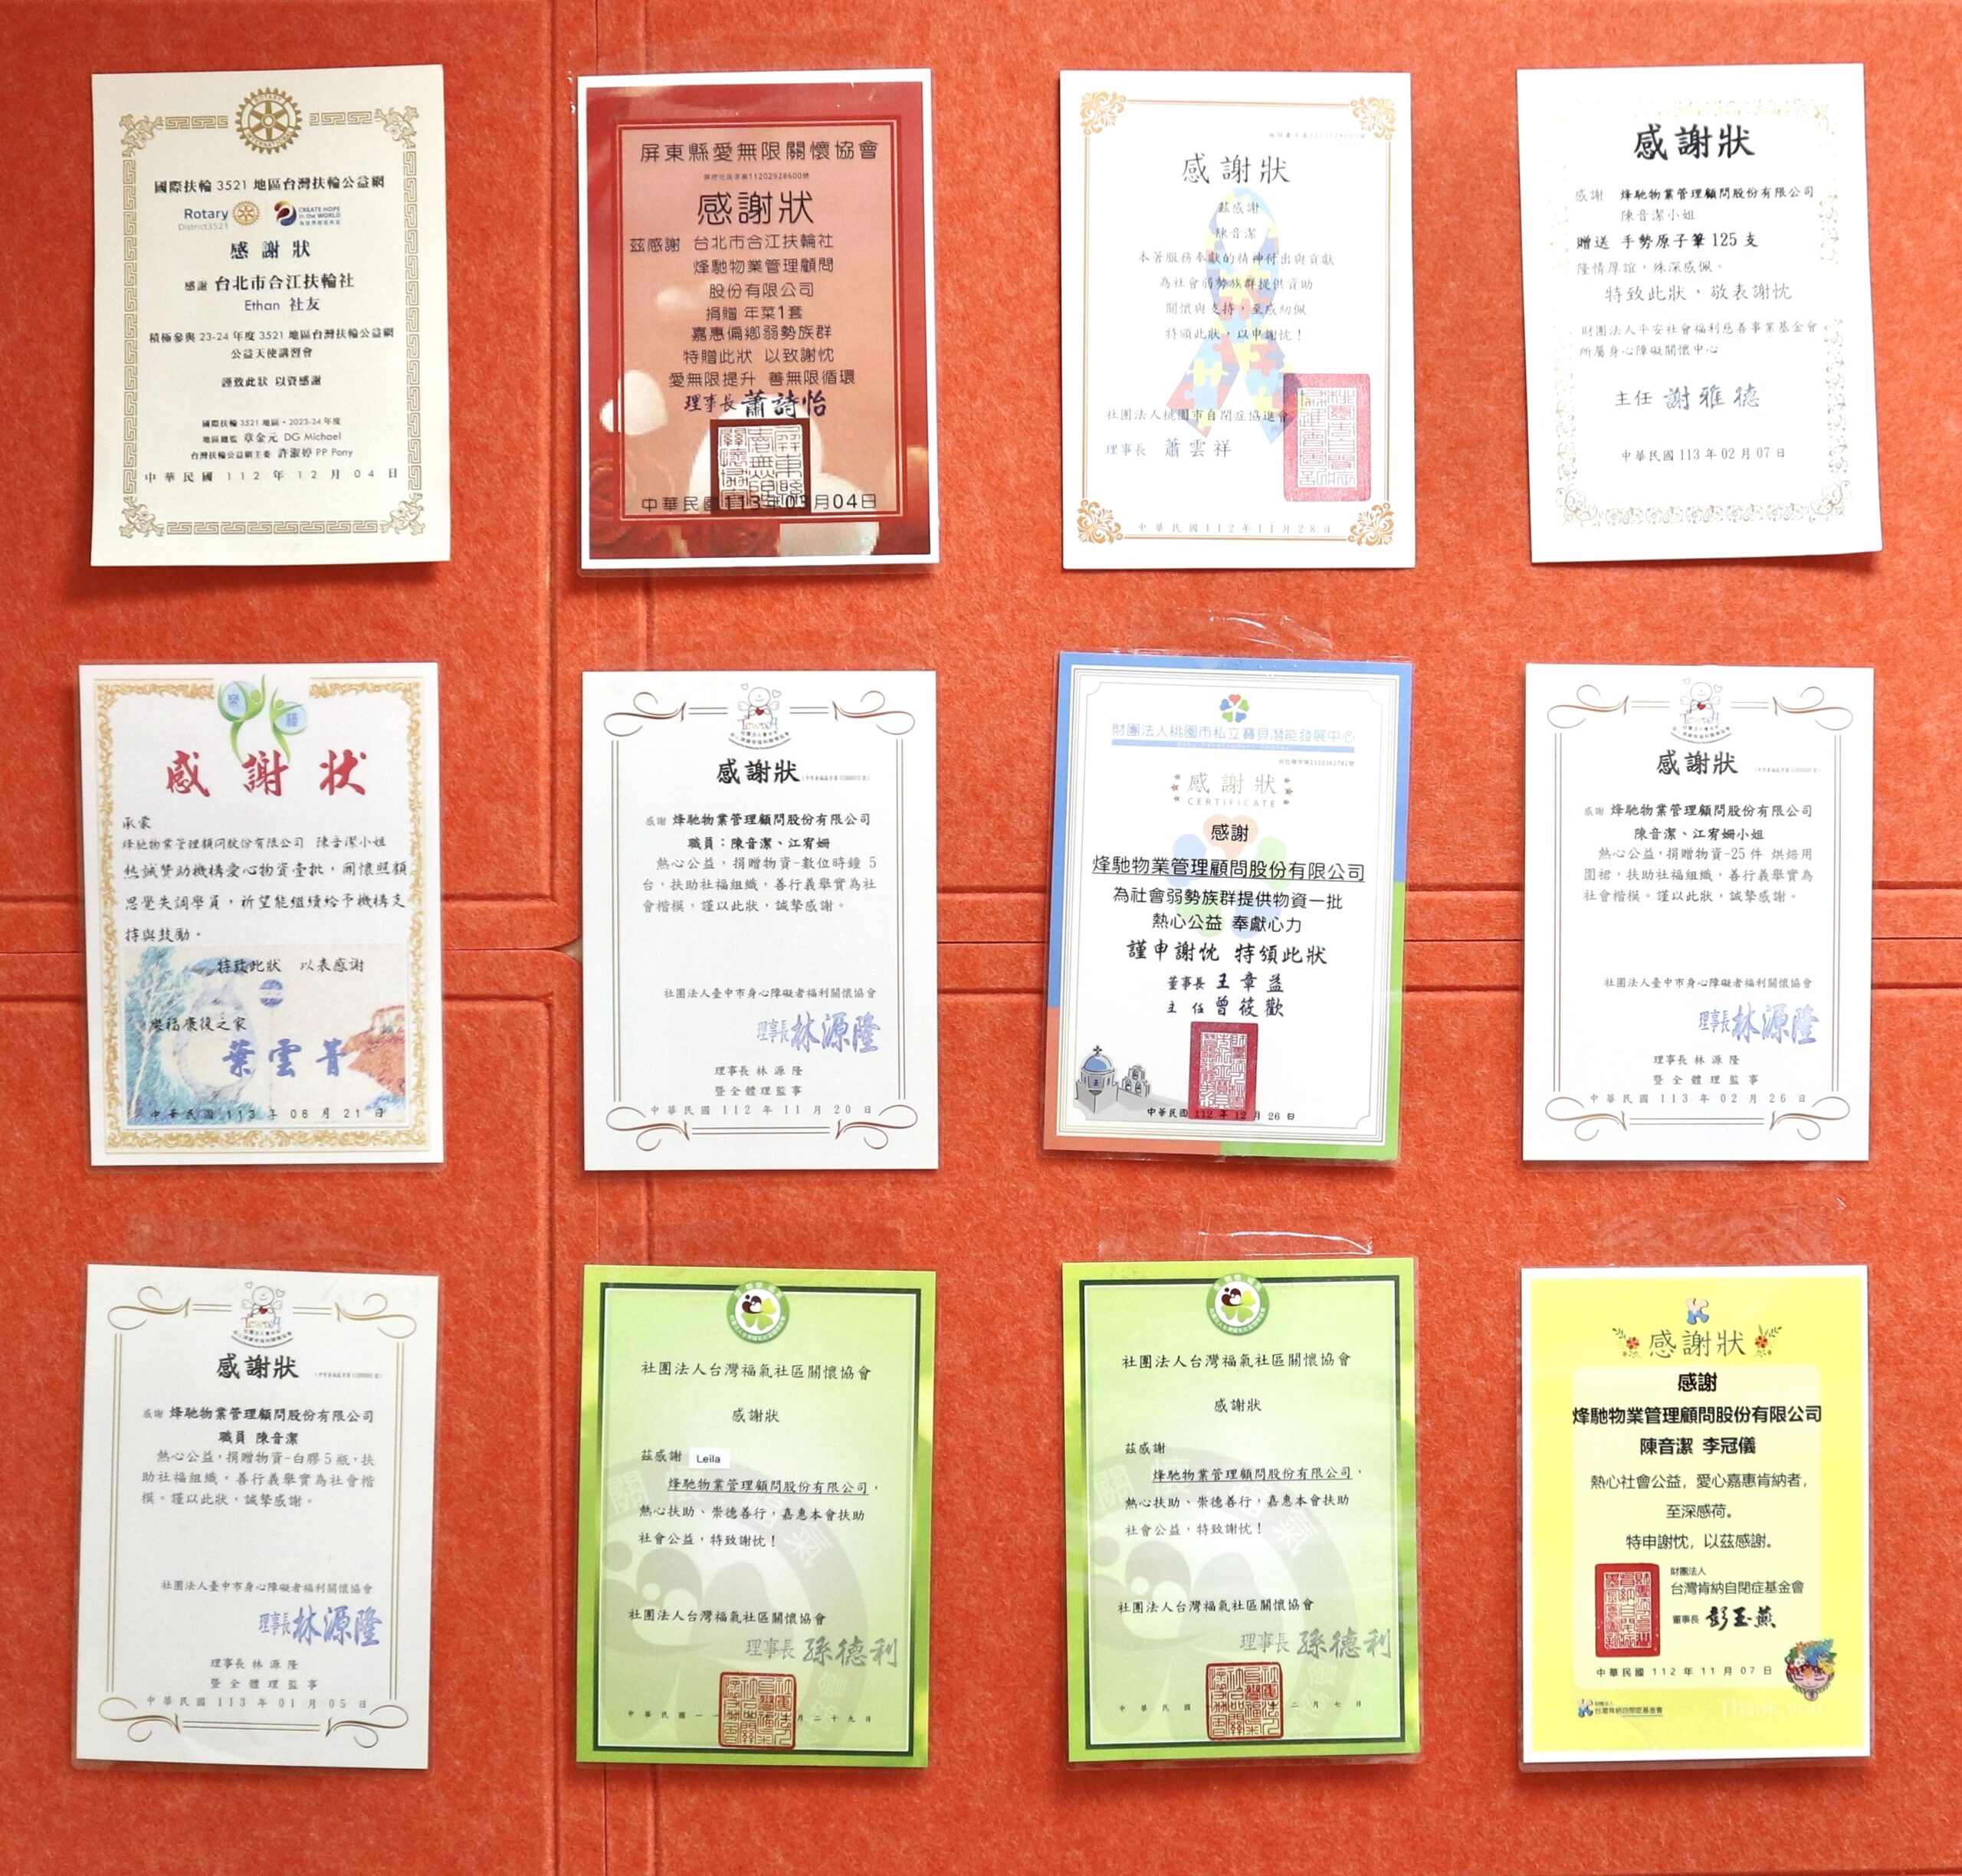 國際扶輪 3521 地區台灣扶輪公益網
Rotary
District3521
CREATE HOPE
in the WORLD
感 謝 狀
感謝 台北市合江扶輪社
Ethan 社友
積極參與 23-24 年度 3521 地區台灣扶輪公益網
公益天使講習會
謹致此狀 以資感謝
國際扶輪 3521 地區・2023-24 年度
地區總監 章金元 DG Michael
台灣扶輪公益網主委 許淑婷 PP Pony
中 華 民 國 1 1 2 年 1 2 月 0 4 日
屏東縣愛無限關懷協會
感謝狀
茲感謝 台北市合江扶輪社
烽馳物業管理顧問
股份有限公司
捐贈 年菜1套
嘉惠偏鄉弱勢族群
特贈此狀 以致謝忱
愛無限提升 善無限循環
理事長 蕭詩怡
中華民國113年03月04日
感謝狀
茲感謝
陳音潔
本著服務奉獻的精神付出與貢獻
為社會弱勢族群提供資助
關懷與支持，至感紉佩
特頒此狀，以申謝忱！
社團法人桃園市自閉症協進會
理事長 蕭雲祥
中 華 民 國 1 1 2 年 1 1 月 2 8 日
感謝狀
感謝 烽馳物業管理顧問股份有限公司
陳音潔小姐
贈送 手勢原子筆 125 支
隆情厚誼，殊深感佩。
特致此狀，敬表謝忱
財團法人平安社會福利慈善事業基金會
所屬身心障礙關懷中心
主任 謝雅德
中華民國 113 年 02 月 07 日
感 謝 狀
承蒙
烽馳物業管理顧問股份有限公司 陳音潔小姐
熱誠贊助機構愛心物資壹批，關懷照顧
思覺失調學員，祈望能繼續給予機構支
持與鼓勵。
特致此狀 以表感謝
樂福康復之家
葉雲菁
中 華 民 國 1 1 3 年 0 6 月 2 1 日
感謝狀
感謝 烽馳物業管理顧問股份有限公司
職員：陳音潔、江宥姍
熱心公益，捐贈物資-數位時鐘 5
台，扶助社福組織，善行義舉實為社
會楷模，謹以此狀，誠摯感謝。
社團法人臺中市身心障礙者福利關懷協會
理事長 林源隆
理事長 林 源 隆
暨 全 體 理 監 事
中 華 民 國 1 1 2 年 1 1 月 2 0 日
財團法人桃園市私立寶貝潛能發展中心
感 謝 狀
CERTIFICATE
感謝
烽馳物業管理顧問股份有限公司
為社會弱勢族群提供物資一批
熱心公益 奉獻心力
謹申謝忱 特頒此狀
董事長 王 章 益
主 任 曾 筱 歡
中華民國 112 年 12 月 26 日
感謝狀
感謝 烽馳物業管理顧問股份有限公司
陳音潔、江宥姍小姐
熱心公益，捐贈物資-25 件 烘焙用
圍裙，扶助社福組織，善行義舉實為
社會楷模。謹以此狀，誠摯感謝。
社團法人臺中市身心障礙者福利關懷協會
理事長 林源隆
理事長 林 源 隆
暨 全 體 理 監 事
中 華 民 國 1 1 3 年 0 2 月 2 6 日
感謝狀
感謝 烽馳物業管理顧問股份有限公司
職員 陳音潔
熱心公益，捐贈物資-白膠 5 瓶，扶
助社福組織，善行義舉實為社會楷
模。謹以此狀，誠摯感謝。
社團法人臺中市身心障礙者福利關懷協會
理事長 林源隆
理事長 林 源 隆
暨 全 體 理 監 事
中 華 民 國 1 1 3 年 0 1 月 0 5 日
社團法人台灣福氣社區關懷協會
感謝狀
茲感謝 Leila
烽馳物業管理顧問股份有限公司，
熱心扶助、崇德善行，嘉惠本會扶助
社會公益，特致謝忱！
社團法人台灣福氣社區關懷協會
理事長 孫德利
中 華 民 國 一 月 二 十 九 日
社團法人台灣福氣社區關懷協會
感謝狀
茲感謝
烽馳物業管理顧問股份有限公司，
熱心扶助、崇德善行，嘉惠本會扶助
社會公益，特致謝忱！
社團法人台灣福氣社區關懷協會
理事長 孫德利
中 華 民 國 二 月 七 日
感謝狀
感謝
烽馳物業管理顧問股份有限公司
陳音潔 李冠儀
熱心社會公益，愛心嘉惠肯納者，
至深感荷。
特申謝忱，以茲感謝。
財團法人
台灣肯納自閉症基金會
董事長 彭玉燕
中 華 民 國 112 年 11 月 07 日
財團法人
台灣肯納自閉症基金會
Thank you